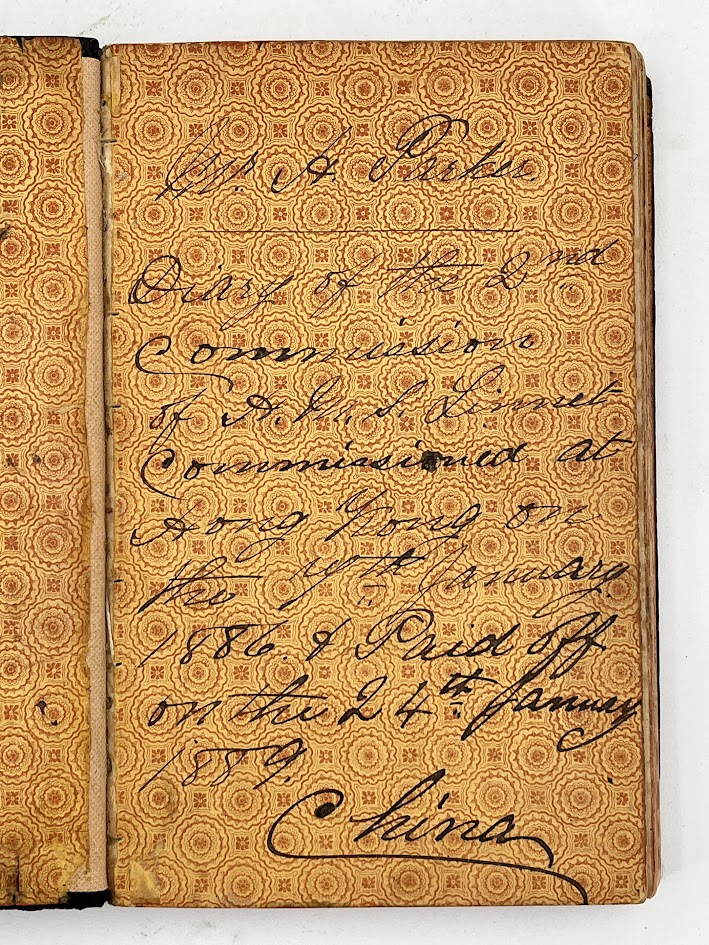 A. Parker
Diary of the 2nd
Commission
of H. M. S. Linnet
Commissioned at
Hong Kong on
the 19th January
1886. & Paid off
on the 24th January
1889.
China